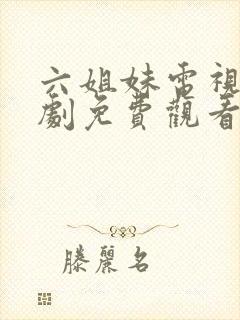 六姐妹電視
劇免費觀看
滕麗名